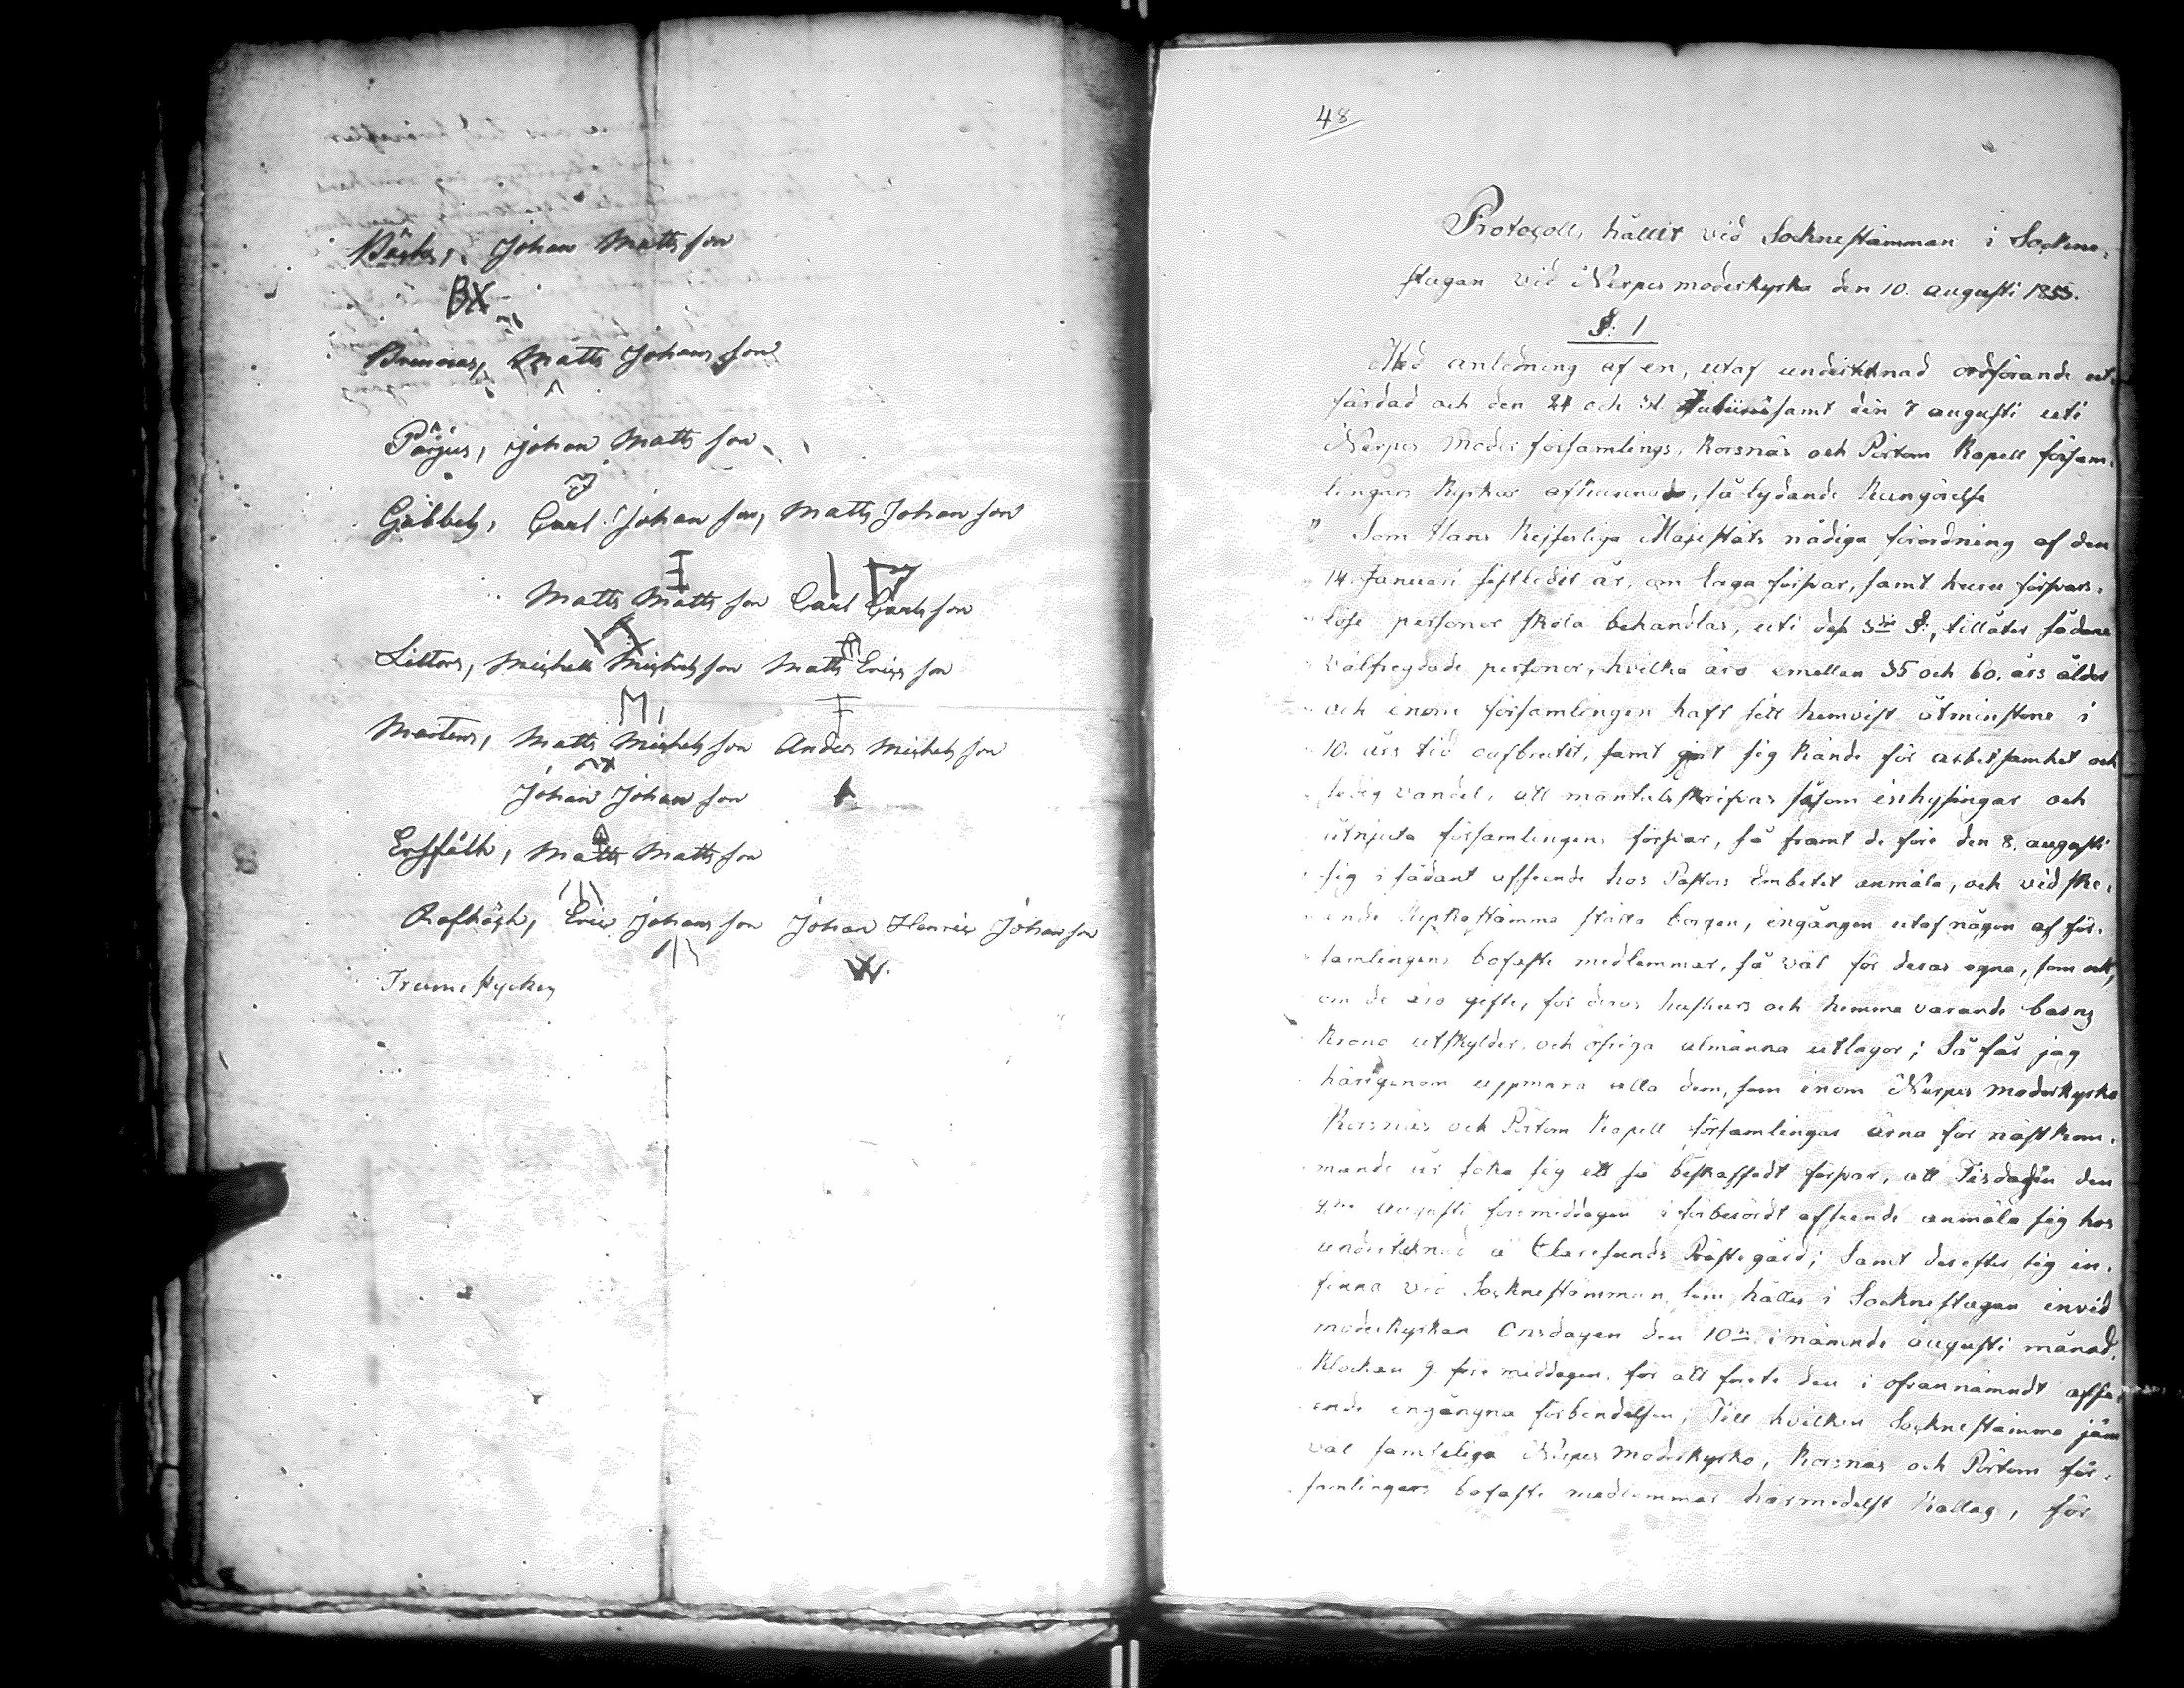 Johan Mattsson
BX
Matts Johansson
Pörjus, Johan Mattsson
Gåbbels, Carl Johansson, Matts Johansson
Matts Mattsson Carl Carlsson
Listers, Michell Michelsson Matts Ericsson
Mårtens, Matts Michelsson Anders Michelsson
Johan Johansson
Matts Mattsson
Eric Johansson Johan Henric Johansson
48
Protocoll, hållit vid Sockneftämman i Sockne-
stugan vid Nerpes moderkyrka den 10. augusti 1853.
§: 1
Med anledning af en, utaf undertecknad ordförande ut-
färdad och den 24 och 31. Julii samt den 7 augusti uti
Nerpes Moder församlings, Korsnäs och Pörtom Kapell försam-
lingars Kyrkor afkunnad, så lydande Kungörelse
" Som Hans Kejserliga Majestäts nådiga förordning af den
14. Januari sistledit år, om laga försvar, samt huru försvars-
löse personer skola behandlas, uti dess 3die §:, tillåter sådane
välfregdade personer, hvilka äro emellan 35 och 60. års ålder
och inom församlingen haft sitt hemvist åtminstone i
10. års tid oafbrutit, samt gjort sig kände för arbetsamhet och
sedig vandel, att mantalsskrifvas såsom inhysingar och
åtnjuta församlingens försvar, så framt de före den 8. augusti
sig i sådant afseende hos Pastors Embetet anmäla, och vid ske-
ende Kyrkostämma ställa borgen, ingången utaf någon af för-
samlingens bofaste medlemmar, så väl för deras egna, som ock,
om de äro gifte, för deras hustrurs och hemma varande barns
Krono utskylder och öfriga almänna utlagor; Så får jag
härigenom uppmana alla dem, som inom Nerpes Moderkyrko
Korsnäs och Pörtom Kapell församlingar ärna för nästkom-
mande år söka sig ett så beskaffadt försvar, att Tisdagen den
augusti förmiddagen i förberördt afseende anmäla sig hos
undertecknad å Prästegård; Samt derefter sig in-
finna vid Sockneftämman, som hålles i Sockneftugan invid
moderkyrkan Onsdagen den 10de i nämnde augusti månad,
Klockan 9. före middagen, för att förete den i ofvannämndt afse-
ende ingångna förbindelsen; Till hvilken Sockneftämma jäm
väl samteliga Nerpes Moderkyrko, Korsnäs och Pörtom för-
samlingars bofaste medlemmar härmedelst kallas, för